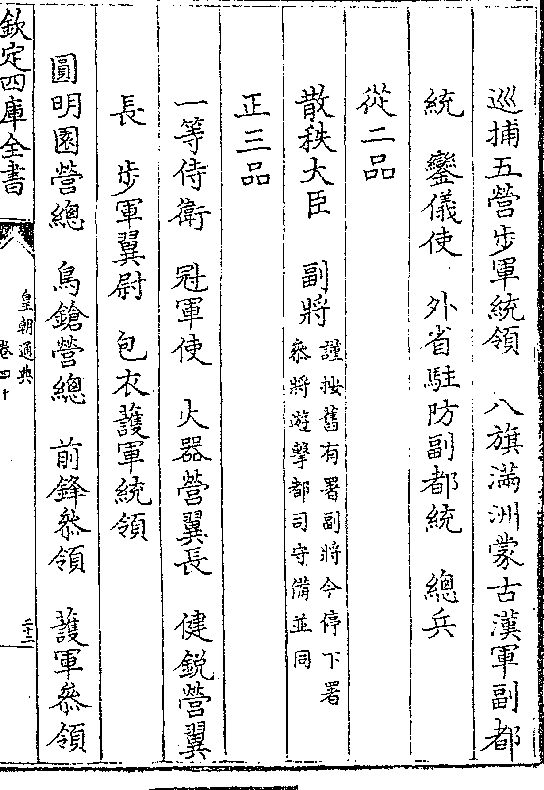 巡捕五營步軍統領　八旗滿洲蒙古漢軍副都
統　鑾儀使　外省駐防副都統　總兵
從二品
散秩大臣　副將謹按舊有署副將今停下署
叅將遊擊都司守備並同
正三品
一等侍衛　冠軍使　火器營翼長　健銳營翼
長　步軍翼尉　包衣護軍統領
圓明園營總　鳥鎗營總　前鋒叅領　護軍叅領
欽定四庫全書
皇朝通典
卷四十
二十二